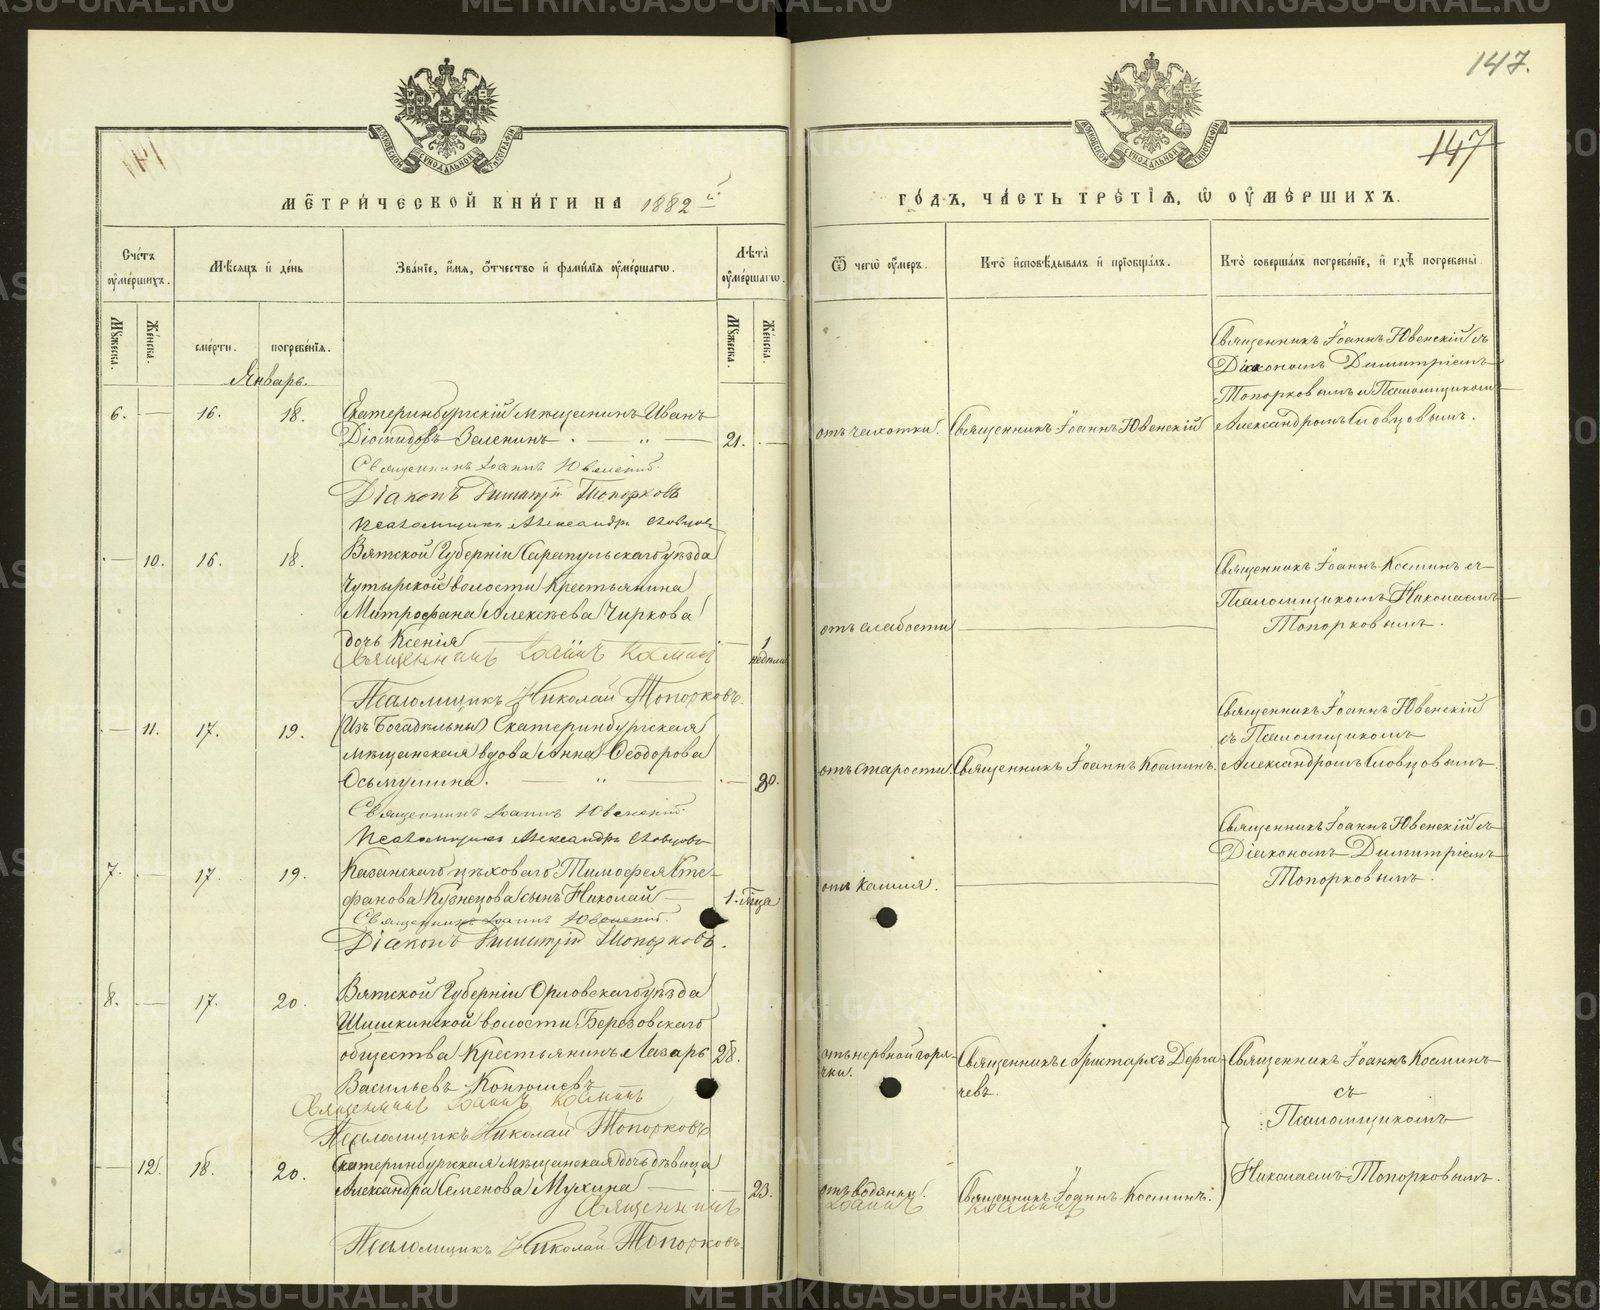 147.
147
МОСКОВСКОЙ СУНОДАЛЬНОЙ ТИПОГРАФІИ
МОСКОВСКОЙ СУНОДАЛЬНОЙ ТИПОГРАФІИ
МЕТРИЧЕСКОЙ КНИГИ НА 1882й
ГОДЪ, ЧАСТЬ ТРЕТІЯ, Ѿ ОУМЕРШИХЪ.
Счетъ оумершихъ.
Мѣсяцъ и день
Званіе, имя, отчество и фамилія оумершагѡ.
Лѣта оумершагѡ.
Ѿ чегѡ оумеръ.
Кто исповѣдывалъ и пріобщалъ.
Кто совершалъ погребеніе, и гдѣ погребены.
Мужеска.
Женска.
смерти.
погребенія.
Мужеска.
Женска.
Январь.
6. — 16. 18. Екатеринбургскій мѣщанинъ Иванъ
Діомидовъ Зеленинъ. 21. —
отъ чахотки.
Священникъ Іоаннъ Ювенскій
Священникъ Іоаннъ Ювенскій съ
Діакономъ Димитріемъ
Топорковымъ и Псаломщикомъ
Александромъ Словцовымъ.
Священникъ Іоаннъ Ювенскій.
Діаконъ Димитрій Топорковъ
Псаломщикъ Александръ Словцовъ
— 10. 16. 18. Вятской Губерніи Сарапульскаго уѣзда
Чутырской волости Крестьянина
Митрофана Алексѣева Чиркова
дочь Ксенія — 1 недѣли
отъ слабости
Священникъ Іоаннъ Косминъ съ
Псаломщикомъ Николаемъ
Топорковымъ.
Священникъ Іоаннъ Косминъ
Псаломщикъ Николай Топорковъ.
— 11. 17. 19. (Изъ Богадѣльны) Екатеринбургская
мѣщанская вдова Анна Ѳеодорова
Осьмушина. — 80.
отъ старости.
Священникъ Іоаннъ Косминъ.
Священникъ Іоаннъ Ювенскій
съ Псаломщикомъ
Александромъ Словцовымъ.
Священникъ Іоаннъ Ювенскій.
Псаломщикъ Александръ Словцовъ
7. — 17. 19. Казанскаго цѣховаго Тимофея Сте-
фанова Кузнецова сынъ Николай — 1. м̃ца
отъ кашля.
Священникъ Іоаннъ Ювенскій съ
Діакономъ Димитріемъ
Топорковымъ.
Священникъ Іоаннъ Ювенскій.
Діаконъ Димитрій Топорковъ.
8. — 17. 20. Вятской Губерніи Орловскаго уѣзда
Шишкинской волости, Березовскаго
общества Крестьянинъ Лазарь 28.
Васильевъ Конюшевъ
отъ нервной горя-
чки.
Священникъ Аристархъ Дерга-
чевъ.
Священникъ Іоаннъ Косминъ
съ
Псаломщикомъ
Николаемъ Топорковымъ.
Священникъ Іоаннъ Косминъ
Псаломщикъ Николай Топорковъ
— 12. 18. 20. Екатеринбургская мѣщанская дочь дѣвица
Александра Семенова Мухина — 23.
отъ водянки.
Священникъ Іоаннъ Косминъ.
Священникъ Іоаннъ Косминъ
Псаломщикъ Николай Топорковъ.
METRIKI.GASO-URAL.RU